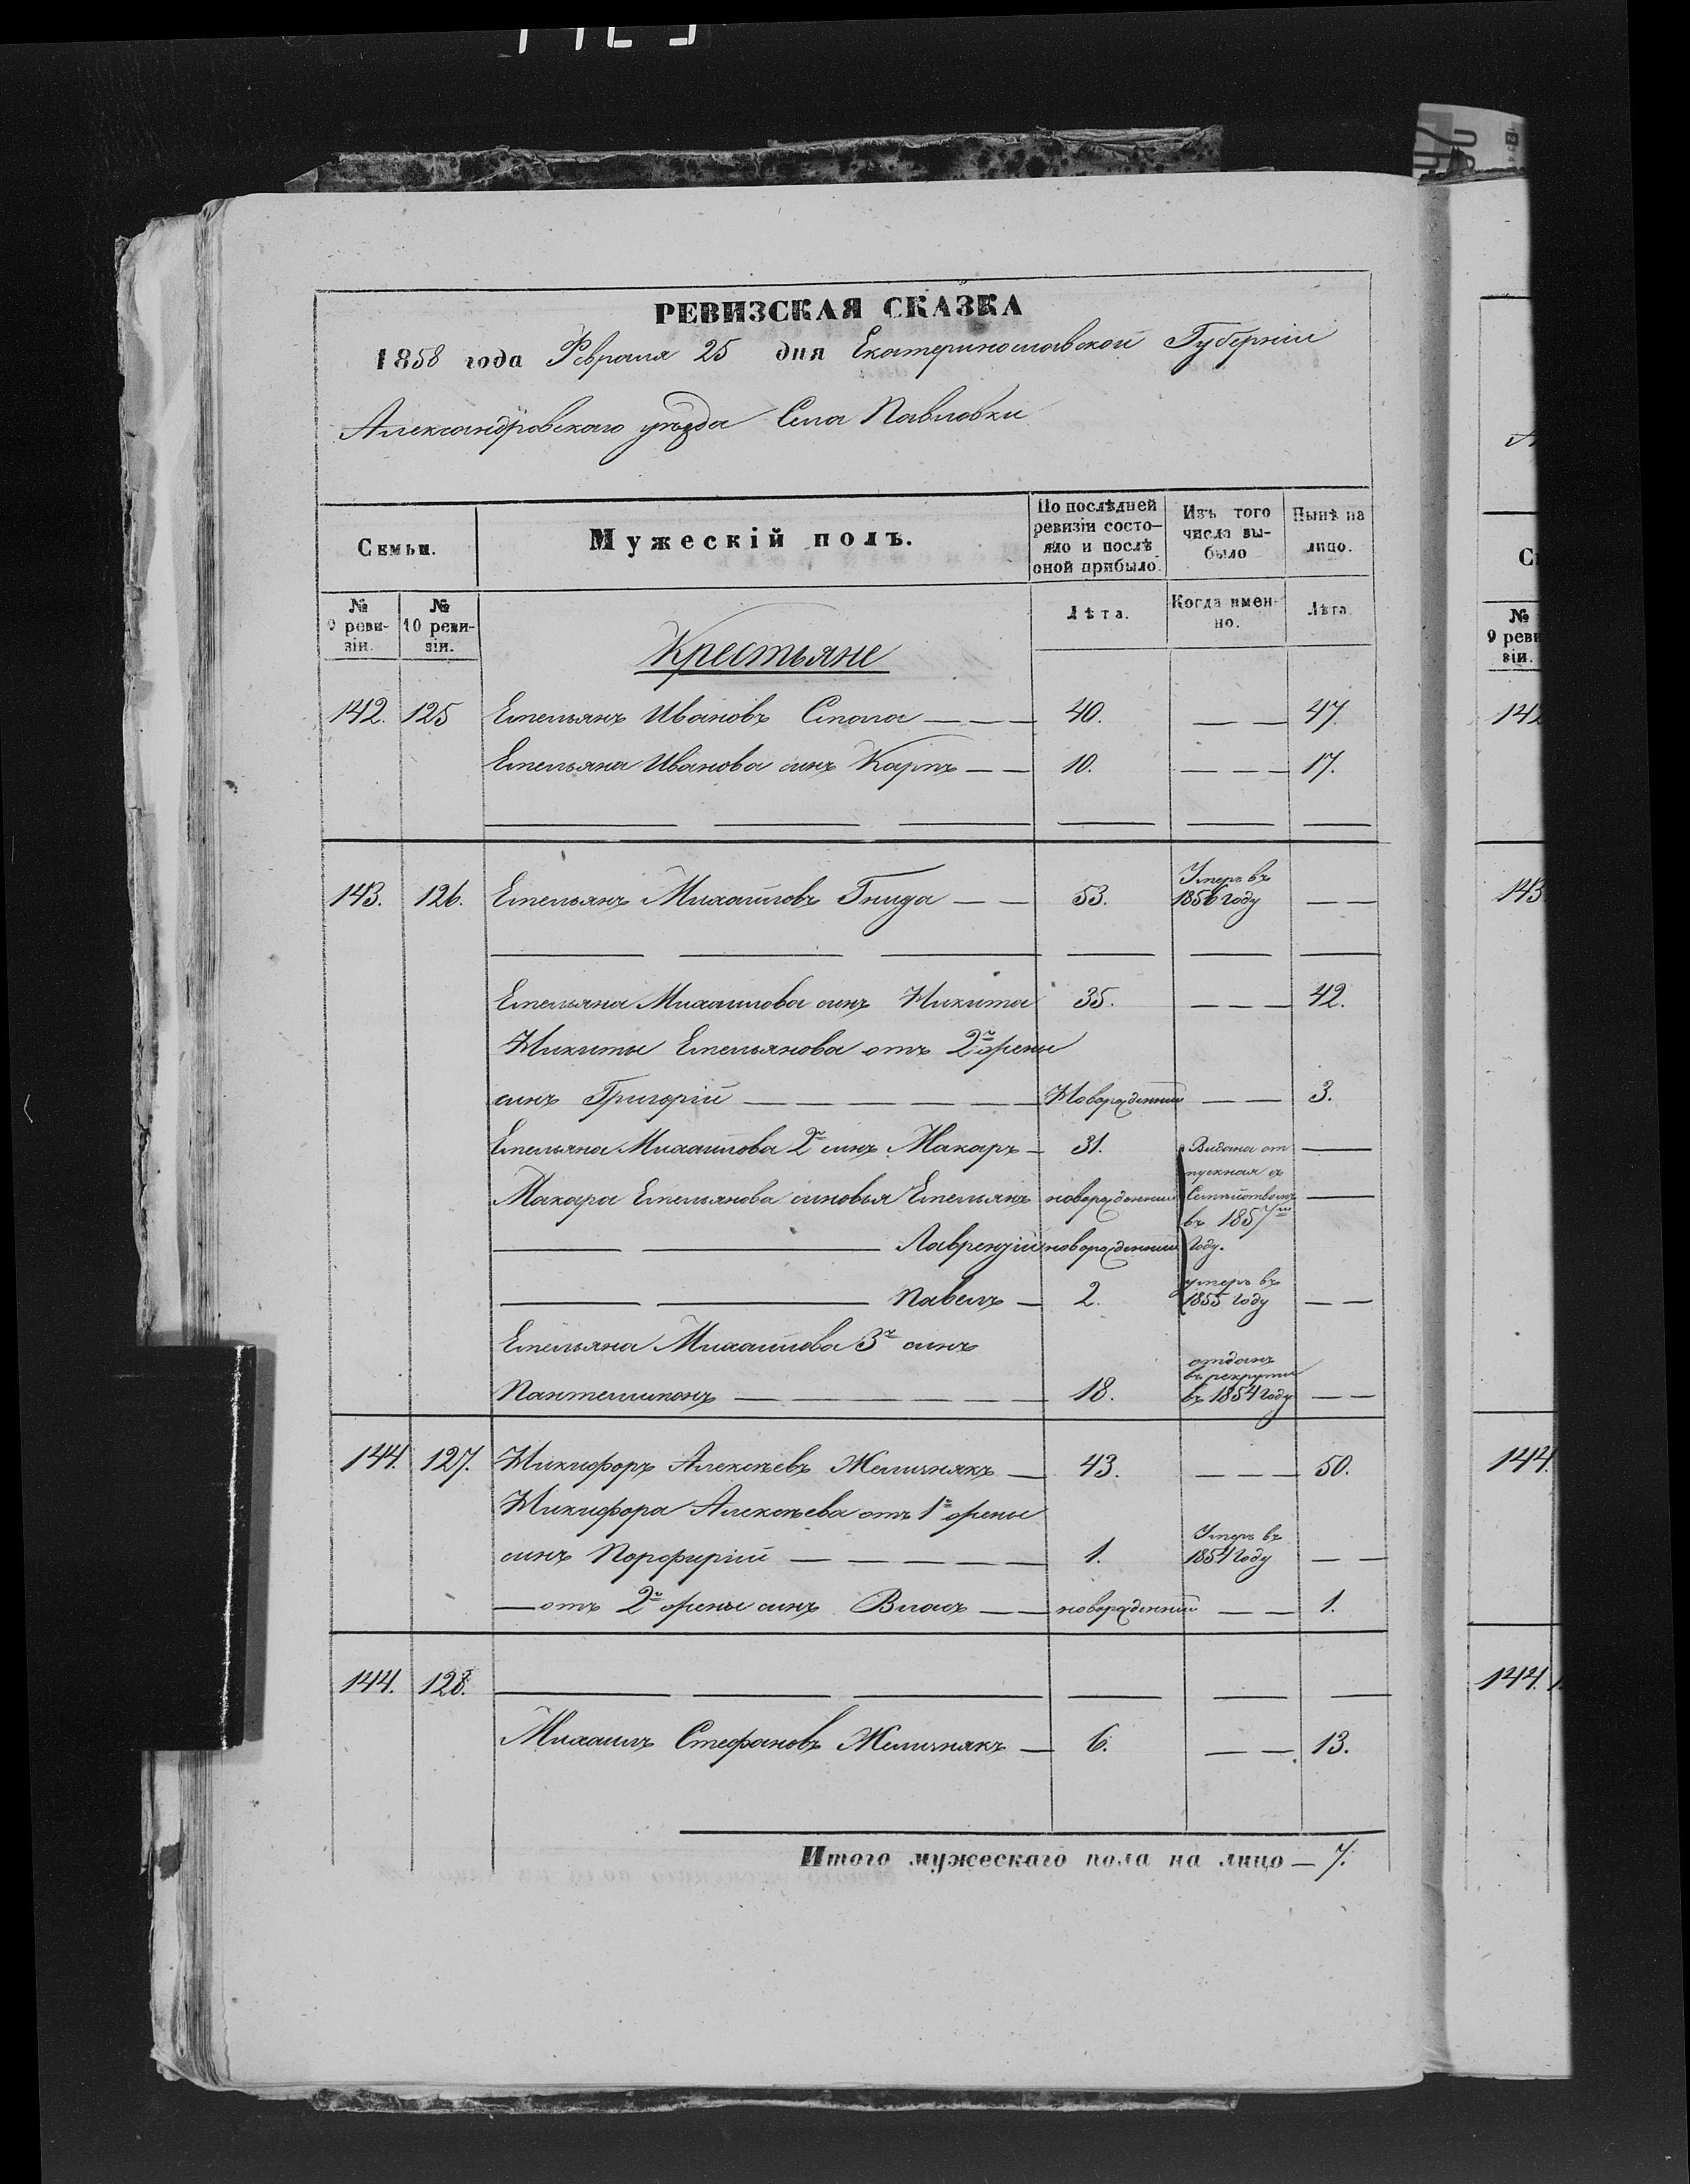 РЕВИЗСКАЯ СКАЗКА
1858 года Февраля 25 дня Екатеринославской Губерніи
Александровскаго уѣзда Села Павловки
Семьи. Мужескій полъ. По послѣдней ревизіи состояло и послѣ оной прибыло. Изъ того числа выбыло Нынѣ на лицо.
№ 9 ревизіи. № 10 ревизіи. Лѣта. Когда именно. Лѣта.
Крестьяне
142. 125 Емельянъ Ивановъ — — — 40. — — 47.
Емельяна Иванова синъ Карпъ — — 10. — — — 17.
143. 126. Емельянъ Михайловъ Гнида — — 53. Умеръ въ 1856 году — —
Емельяна Михаилова синъ Никита 35. — — — 42.
Никиты Емельянова отъ 2й жены
синъ Григорій — — — — — — Новорожденный — — 3.
Емельяна Михайлова 2й синъ Макаръ — 31. Видана от —
Макара Емельянова синовья Емельянъ новорожденный пускная съ Семѣйствомъ —
Лаврентій новорожденный въ 1857м Году.
Павелъ — 2. умеръ въ 1855 году — —
Емельяна Михаилова 3й синъ
Пантелимонъ — — — — — — 18. отданъ въ рекруты въ 1854 году — —
144. 127. Никифоръ Алексѣевъ Желизнякъ — 43. — — — 50.
Никифора Алексѣева отъ 1й жены
синъ Порфирій — — — — — 1. Умеръ въ 1854 году — —
— отъ 2й жены синъ Власъ — — новорожденный — — 1.
144. 128.
Михаилъ Стефановъ Желизнякъ — 6. — — 13.
Итого мужескаго пола на лицо — 7.
С
№
9 реви
зіи.
142
143
144.
144.